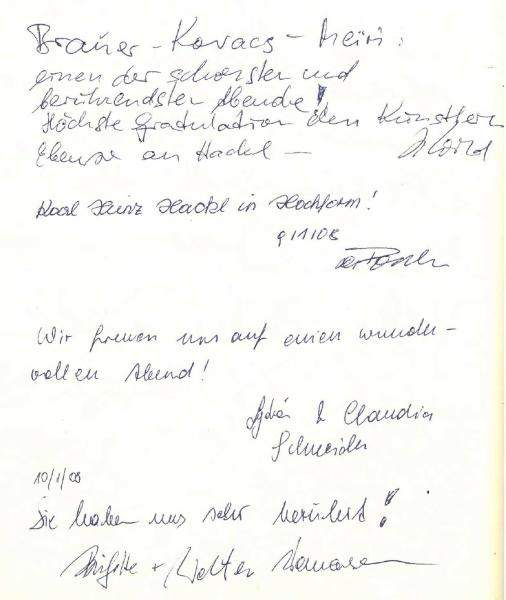 Brauer - Kovacs - Meiri:
einen der schönsten und
berührendsten Abende!
Höchste Gratulation den Künstlern
Ebenso an Hackl —
Karl Heinz Hackl in Hochform!
9/1/08
Wir freuen uns auf einen wunder-
vollen Abend!
& Claudia
Schneider
10/1/08
Sie haben uns sehr berührt!
Brigitte + Walter